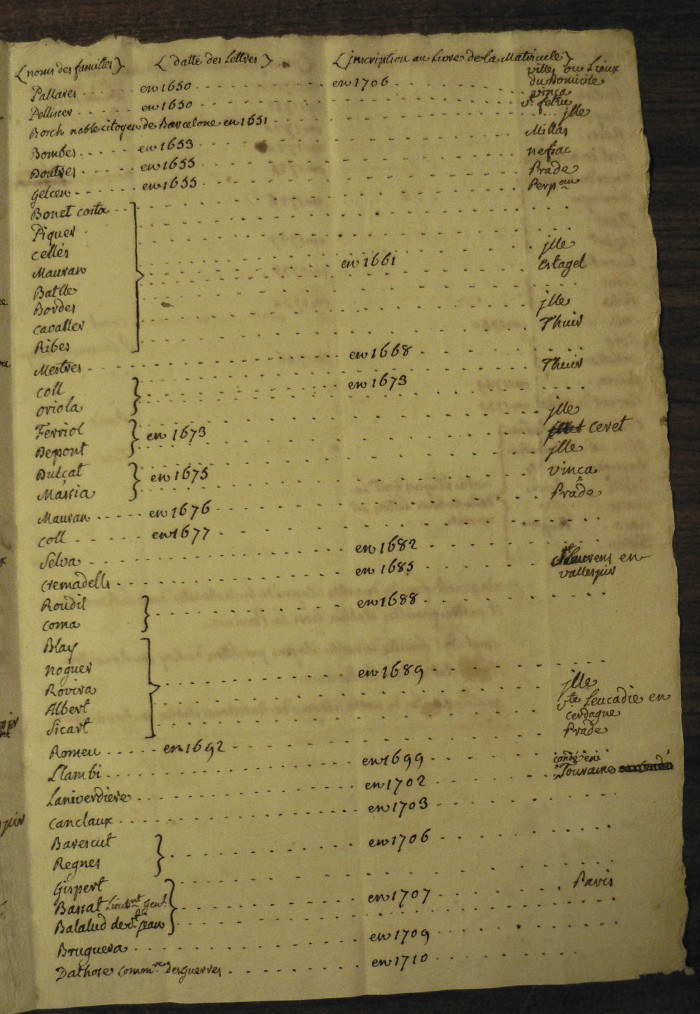 (noms des familles) (datte des Lettres) (jnscription au Livre de la Matricule) villes ou Lieux du Domicile
Pallares en 1650 en 1706 vinça
Pellisser en 1650 st feliu
Borch noble citoyen de Barcelone en 1651 jlle
Bombes en 1653 Millas
Boutres en 1655 nefiac
gelcen en 1655 Prade
Bonet costa Perpan
Piquer
cellés
Mauran en 1661 jlle
Batlle estagel
Bordes
cavaller jlle
Ribes Thuir
Mestres en 1668
coll en 1673 Thuir
oriola
Ferriol en 1673 jlle
Depont ceret
Dulcat en 1675 jlle
Massia vinça
Mauran en 1676 Prade
coll en 1677
Selva en 1682
cremadells en 1685 St Laurens en vallespir
Roudil en 1688
coma
Blay
noguer
Rovira en 1689
Albert jlle
Sicart ste Leucadie en cerdagne
Romeu en 1692 Prade
Llambi en 1699
Laniverdiere en 1702 Touraine
canclaux en 1703
Barescut en 1706
Regnes
Gispert
Bassat Lieutnt genl en 1707 Paris
Balalud de st jean
Bruguera en 1709
Dathose commre des guerres en 1710